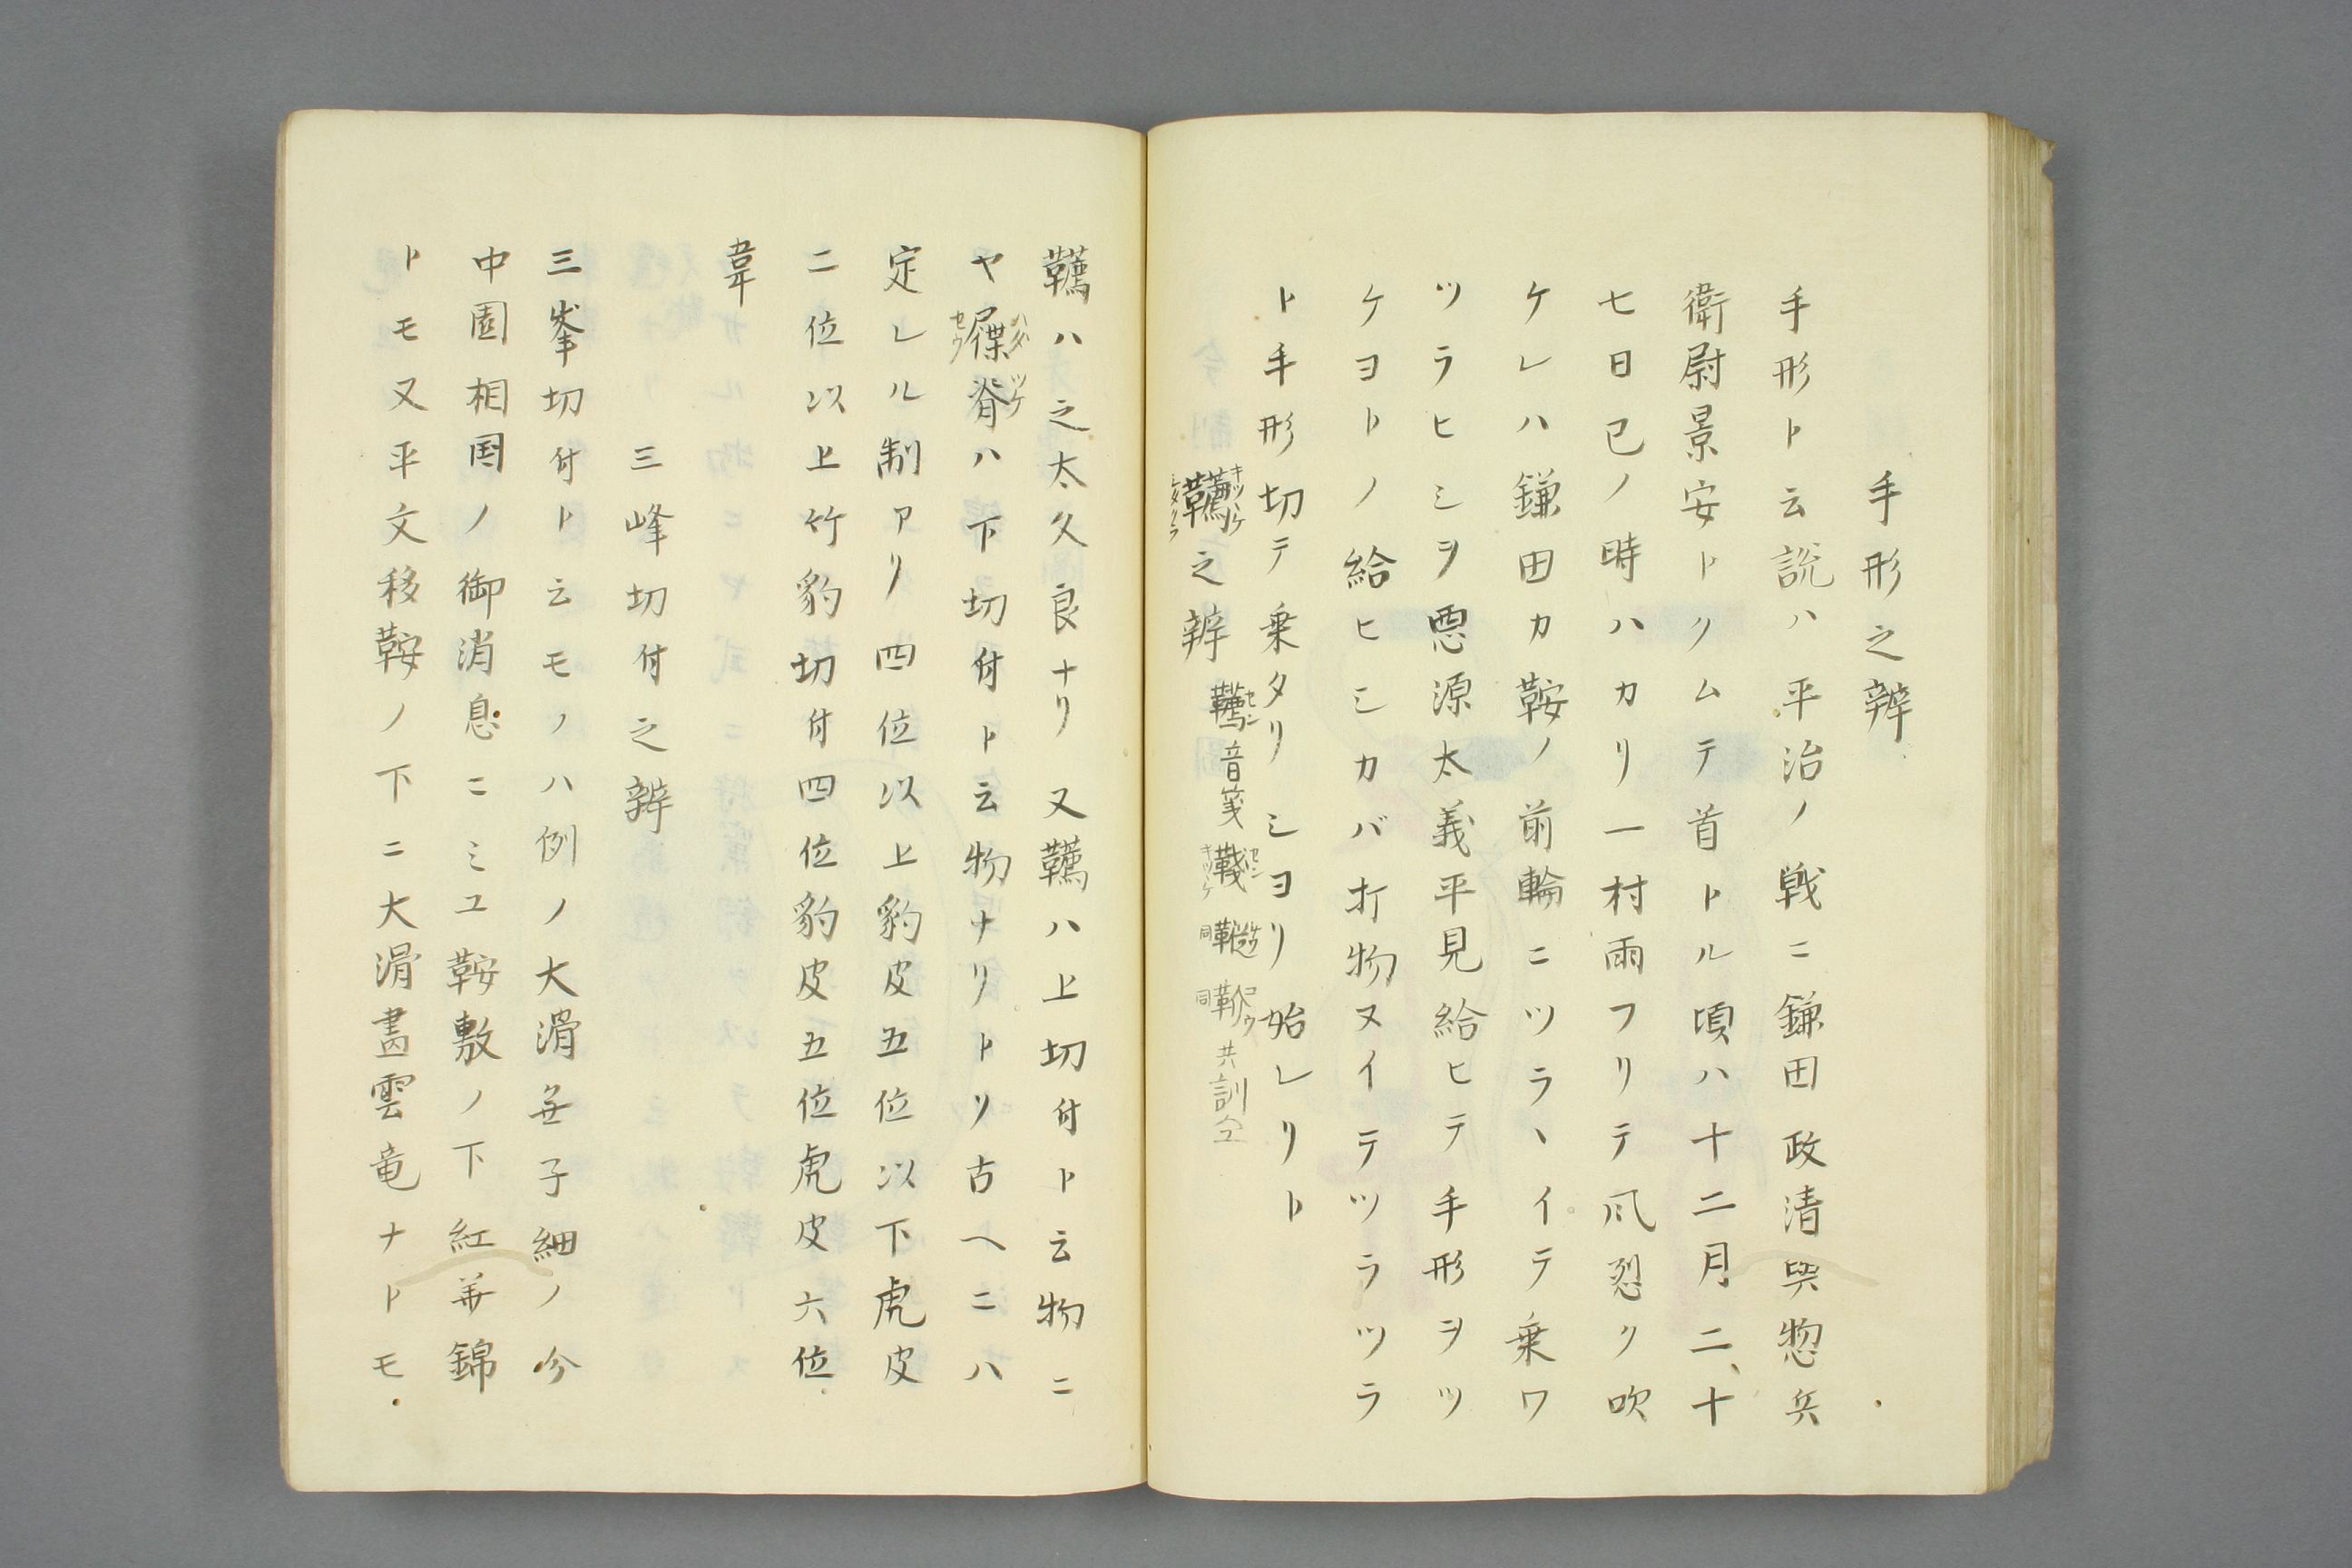 手形之辨
手形ト云説ハ平治ノ戦ニ鎌田政清與惣兵
衛尉景安トクムテ首トル頃ハ十二月二十
七日巳ノ時ハカリ一村雨フリテ風烈ク吹
ケレハ鎌田カ鞍ノ前輪ニツラヽイテ乗ワ
ツラヒシヲ悪源太義平見給ヒテ手形ヲツ
ケヨトノ給ヒシカバ打物ヌイテツララツラ
ト手形切テ乗タリシヨリ始レリト
韉之辨 韉音箋 共訓仝
韉ハ之太久良ナリ又韉ハ上切付ト云物ニ
ヤ屧脊ハ下切付ト云物ナリトソ古ヘニハ
定レル制アリ四位以上豹皮五位以下虎皮
二位以上竹豹切付四位豹皮五位虎皮六位
韋
三峰切付之辨
三峯切付ト云モノハ例ノ大滑無子細ノ今
中園相国ノ御消息ニミユ鞍敷ノ下紅葉錦
トモ又平文移鞍ノ下ニ大滑畫雲竜ナトモ